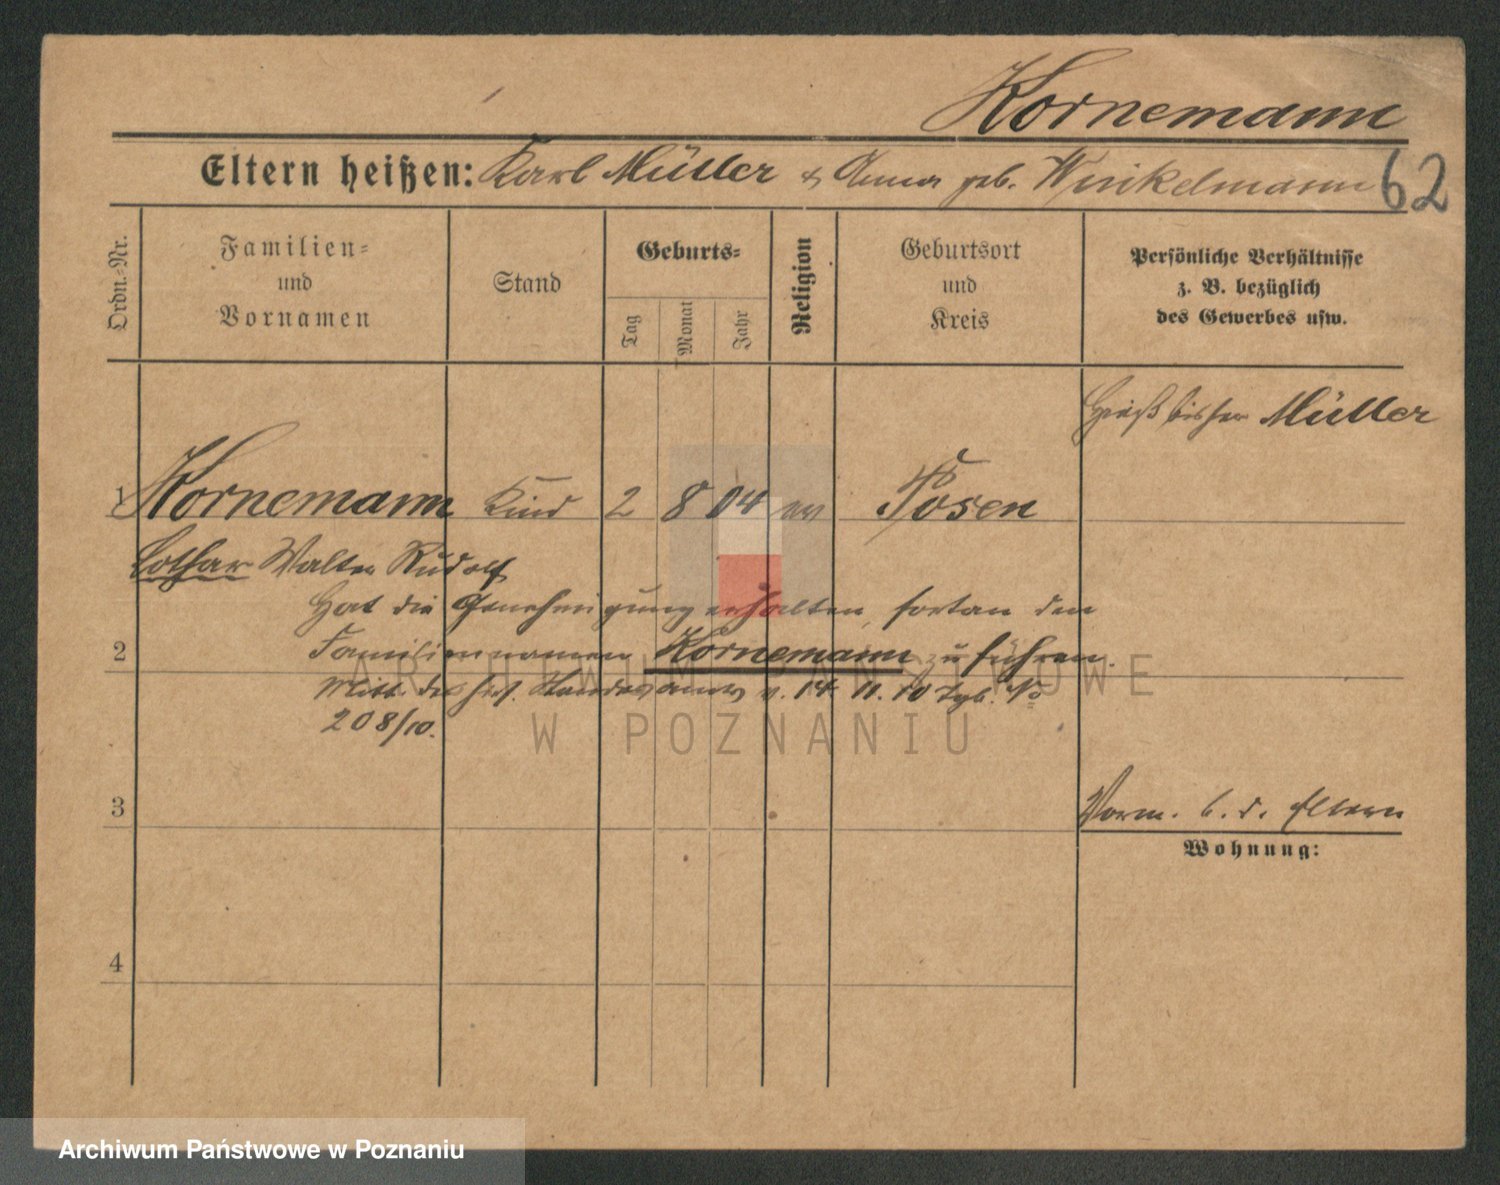 Kornemann
Eltern heißen: Karl Müller & Anna geb. Winkelmann
62
Ordn.-Nr.
Familien- und Vornamen
Stand
Geburts-
Tag
Monat
Jahr
Religion
Geburtsort und Kreis
Persönliche Verhältnisse
z. B. bezüglich
des Gewerbes usw.
Hieß bisher Müller
1 Kornemann Kind 2 8 04 ev Posen
Lothar Walter Rudolf
Hat die Genehmigung erhalten, fortan den
2 Familiennamen Kornemann zu führen.
Mitt. des hies. Standesamts v. 14. 11. 10 Tgb. No
208/10.
ARCHIWUM PAŃSTWOWE
W POZNANIU
3
Worm. b. d. Eltern
Wohnung:
4
Archiwum Państwowe w Poznaniu